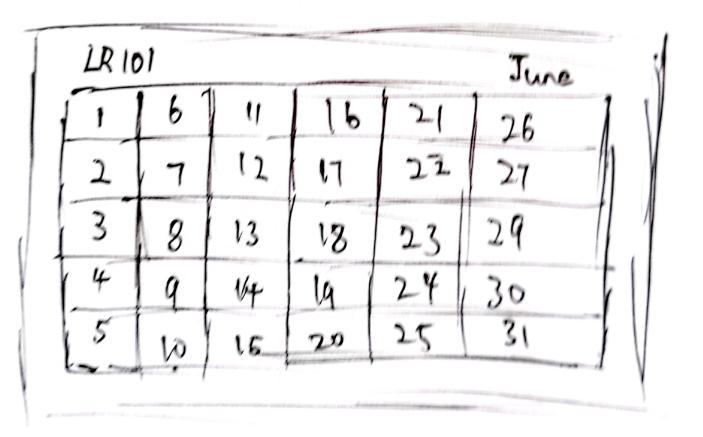 LR 101 June
1 6 11 16 21 26
2 7 12 17 22 27
3 8 13 18 23 29
4 9 14 19 24 30
5 10 15 20 25 31